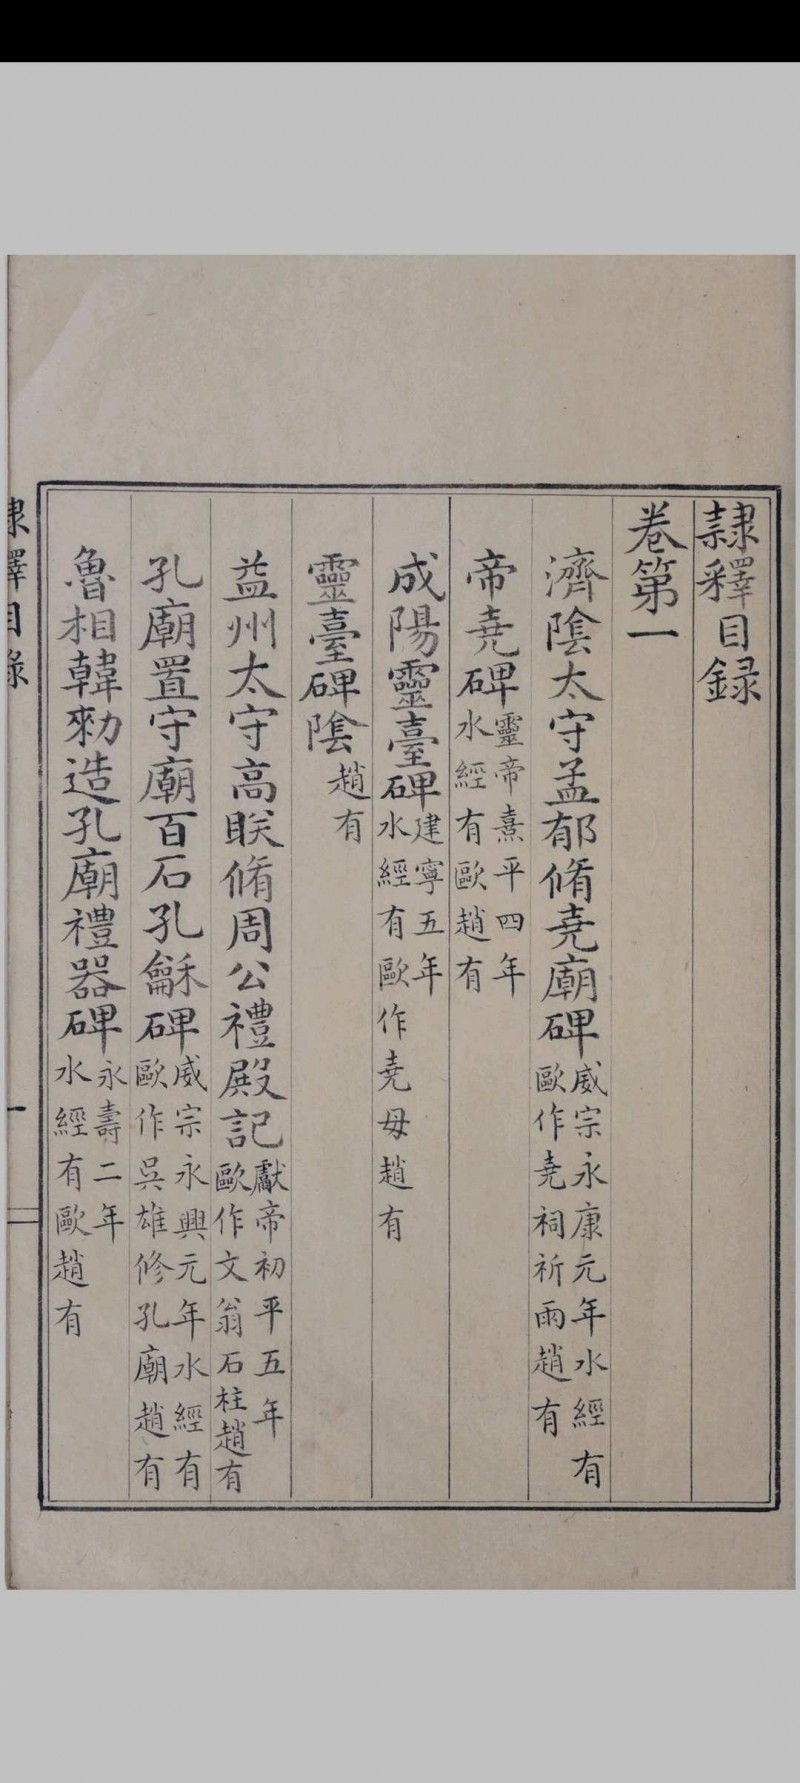 隷釋目録
卷第一
濟隂太守孟郁脩堯廟碑 威宗永康元年水經有 歐作堯祠祈雨趙有
帝堯碑 靈帝熹平四年 水經有歐趙有
成陽靈臺碑 建寧五年 水經有歐作堯母趙有
靈臺碑隂 趙有
益州太守高眹脩周公禮殿記 獻帝初平五年 歐作文翁石柱趙有
孔廟置守廟百石孔龢碑 威宗永興元年水經有 歐作吳雄修孔廟趙有
魯相韓勑造孔廟禮器碑 永壽二年 水經有歐趙有
隷釋目錄
一